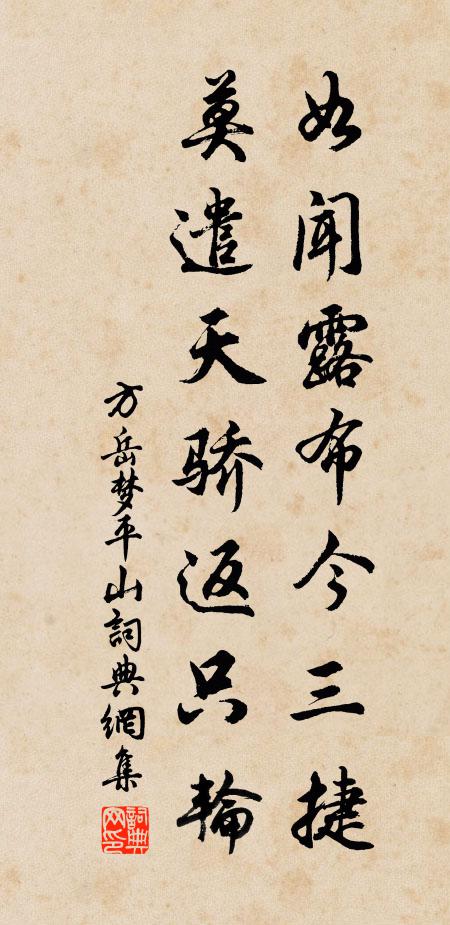 如闻露布今三捷
莫遣天骄返只輪
方岳梦平山詞典網集
詞典网印